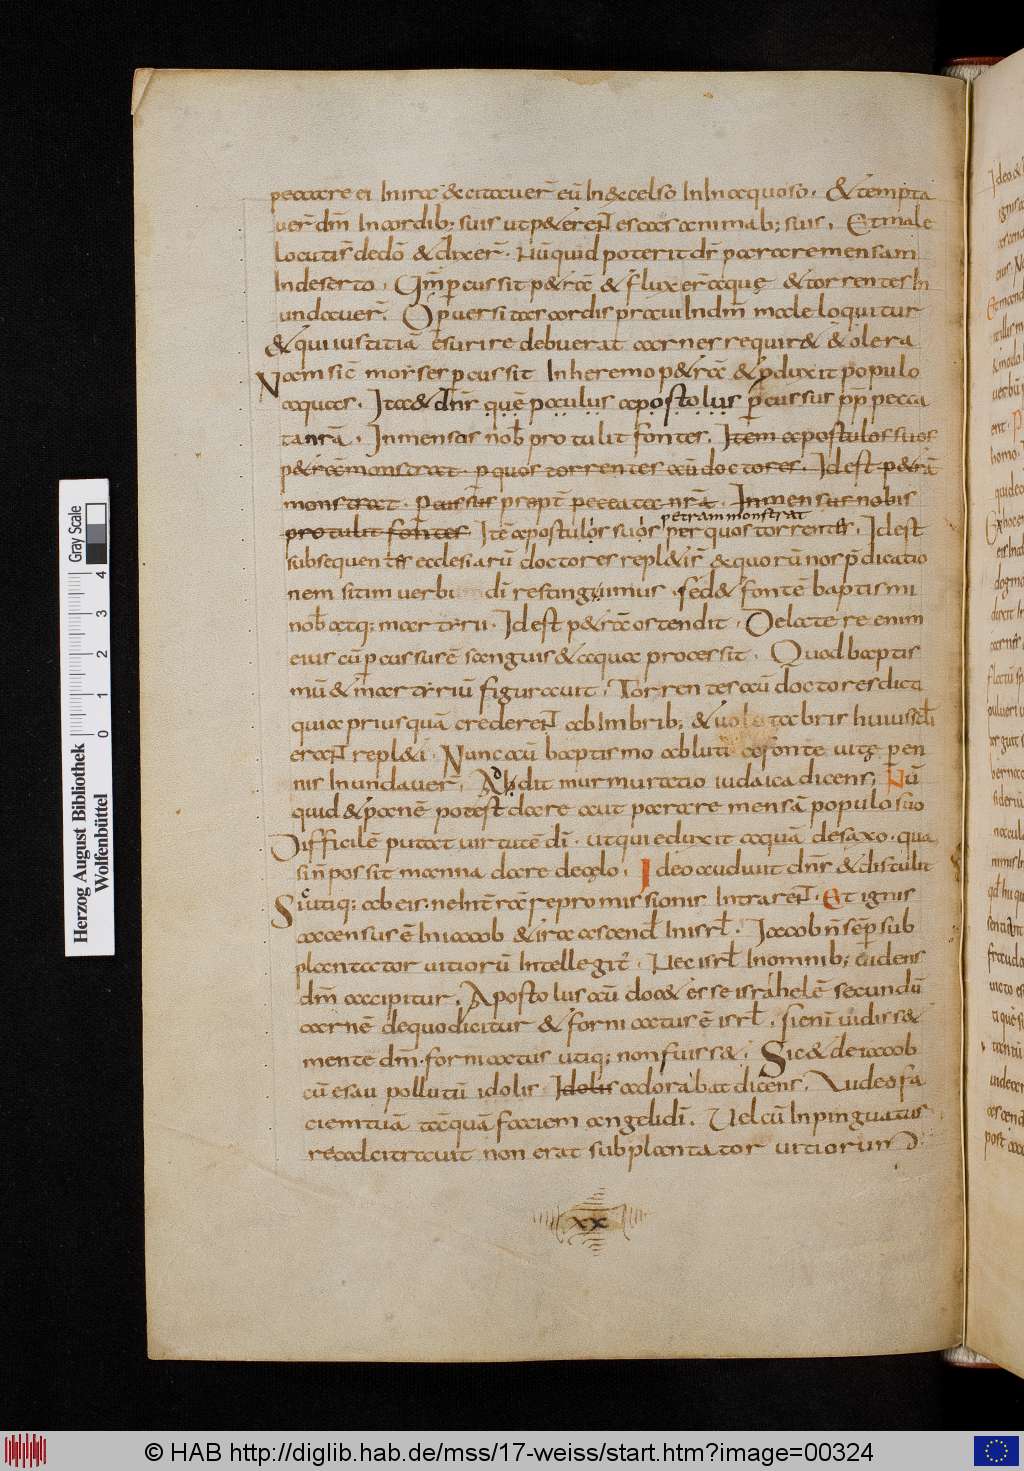 peccare ei In ira & citauer̄ eū In excelso In Inaquoso. & tempta
uer̄ dm̄ In cordib; suis ut peteren̄t escas animab; suis. Et male
locuti s̄ de dō & dixer̄. Nūquid poterit ds̄ parare mensam
In deserto. Qm̄ percussit petrā & fluxer̄ aquę & torrentes In
undauer̄. O peruersitas cordis praui In dm̄ male loquitur
& qui iustitiā esurire debuerat carnes requir& & olera
Nam sic̄ moyses percussit In heremo petrā & ꝓduxit populo
aquas. Ita & dn̄s quē paulus apostolus percussus pp̄ pecca
ta nr̄a. Inmensos nob̄ protulit fontes. Item apostulos suos
petrā monstrat. per quos torrentes aū doctores. Id est petrā
monstrat. Percussus propt̄ peccata nr̄a. Inmensos nobis
protulit fontes Itē apostulos suos petram monstrat per quos torrentes. Id est
subsequentes ecclesiarū doctores replet̄ & quorū nos p̄dicatio
nem sitim uerbi dī restinguimus. sed & fontē baptismi
nob̄ atq; martyrii. Id est petrā ostendit. De latere enim
eius cū percussus ē sanguis & aqua processit. Quod baptis
mū & martyriū figurauit. Torrentes aū doctores dicti
quia priusquā crederen̄t ab Imbrib; & uoluntabris huius scłi
eran̄t repl&i. Nunc aū baptismo abluti a fonte uitę peren
nis Inundauer̄. Addit murmuratio iudaica dicens. Nū
quid & panē potest dare aut parare mensā populo suo
Difficilē putat uirtutē dī. ut qui eduxit aquā de saxo. qua
si n̄ possit manna dare de cęlo. Ideo audiuit dn̄s & distulit
Sic utiq; ab eis. ne In t̄rā repromissionis Intraren̄t. Et ignis
accensus ē In iacob & ira ascend̄ In isrł. Iacob n̄ sēp sub
plantator uitiorū Intellegit̄. Nec isrł In omnib; uidens
dm̄ accipitur. Apostolus aū doc& esse israhelē secundū
carnē de quo dicitur & fornicatus ē isrł. si enī uidiss&
mente dm̄. fornicatus utiq; non fuiss&. Sic & de iacob
cū esau pollutū idolis Idolis adorabat dicens. Uideo fa
ciem tuā tāquā faciem angeli dī. Uel cū Inpinguatus
recalcitrauit non erat subplantator uitiorum
XX
Herzog August Bibliothek
Wolfenbüttel
0 1 2 3 4
Gray Scale
© HAB http://diglib.hab.de/mss/17-weiss/start.htm?image=00324